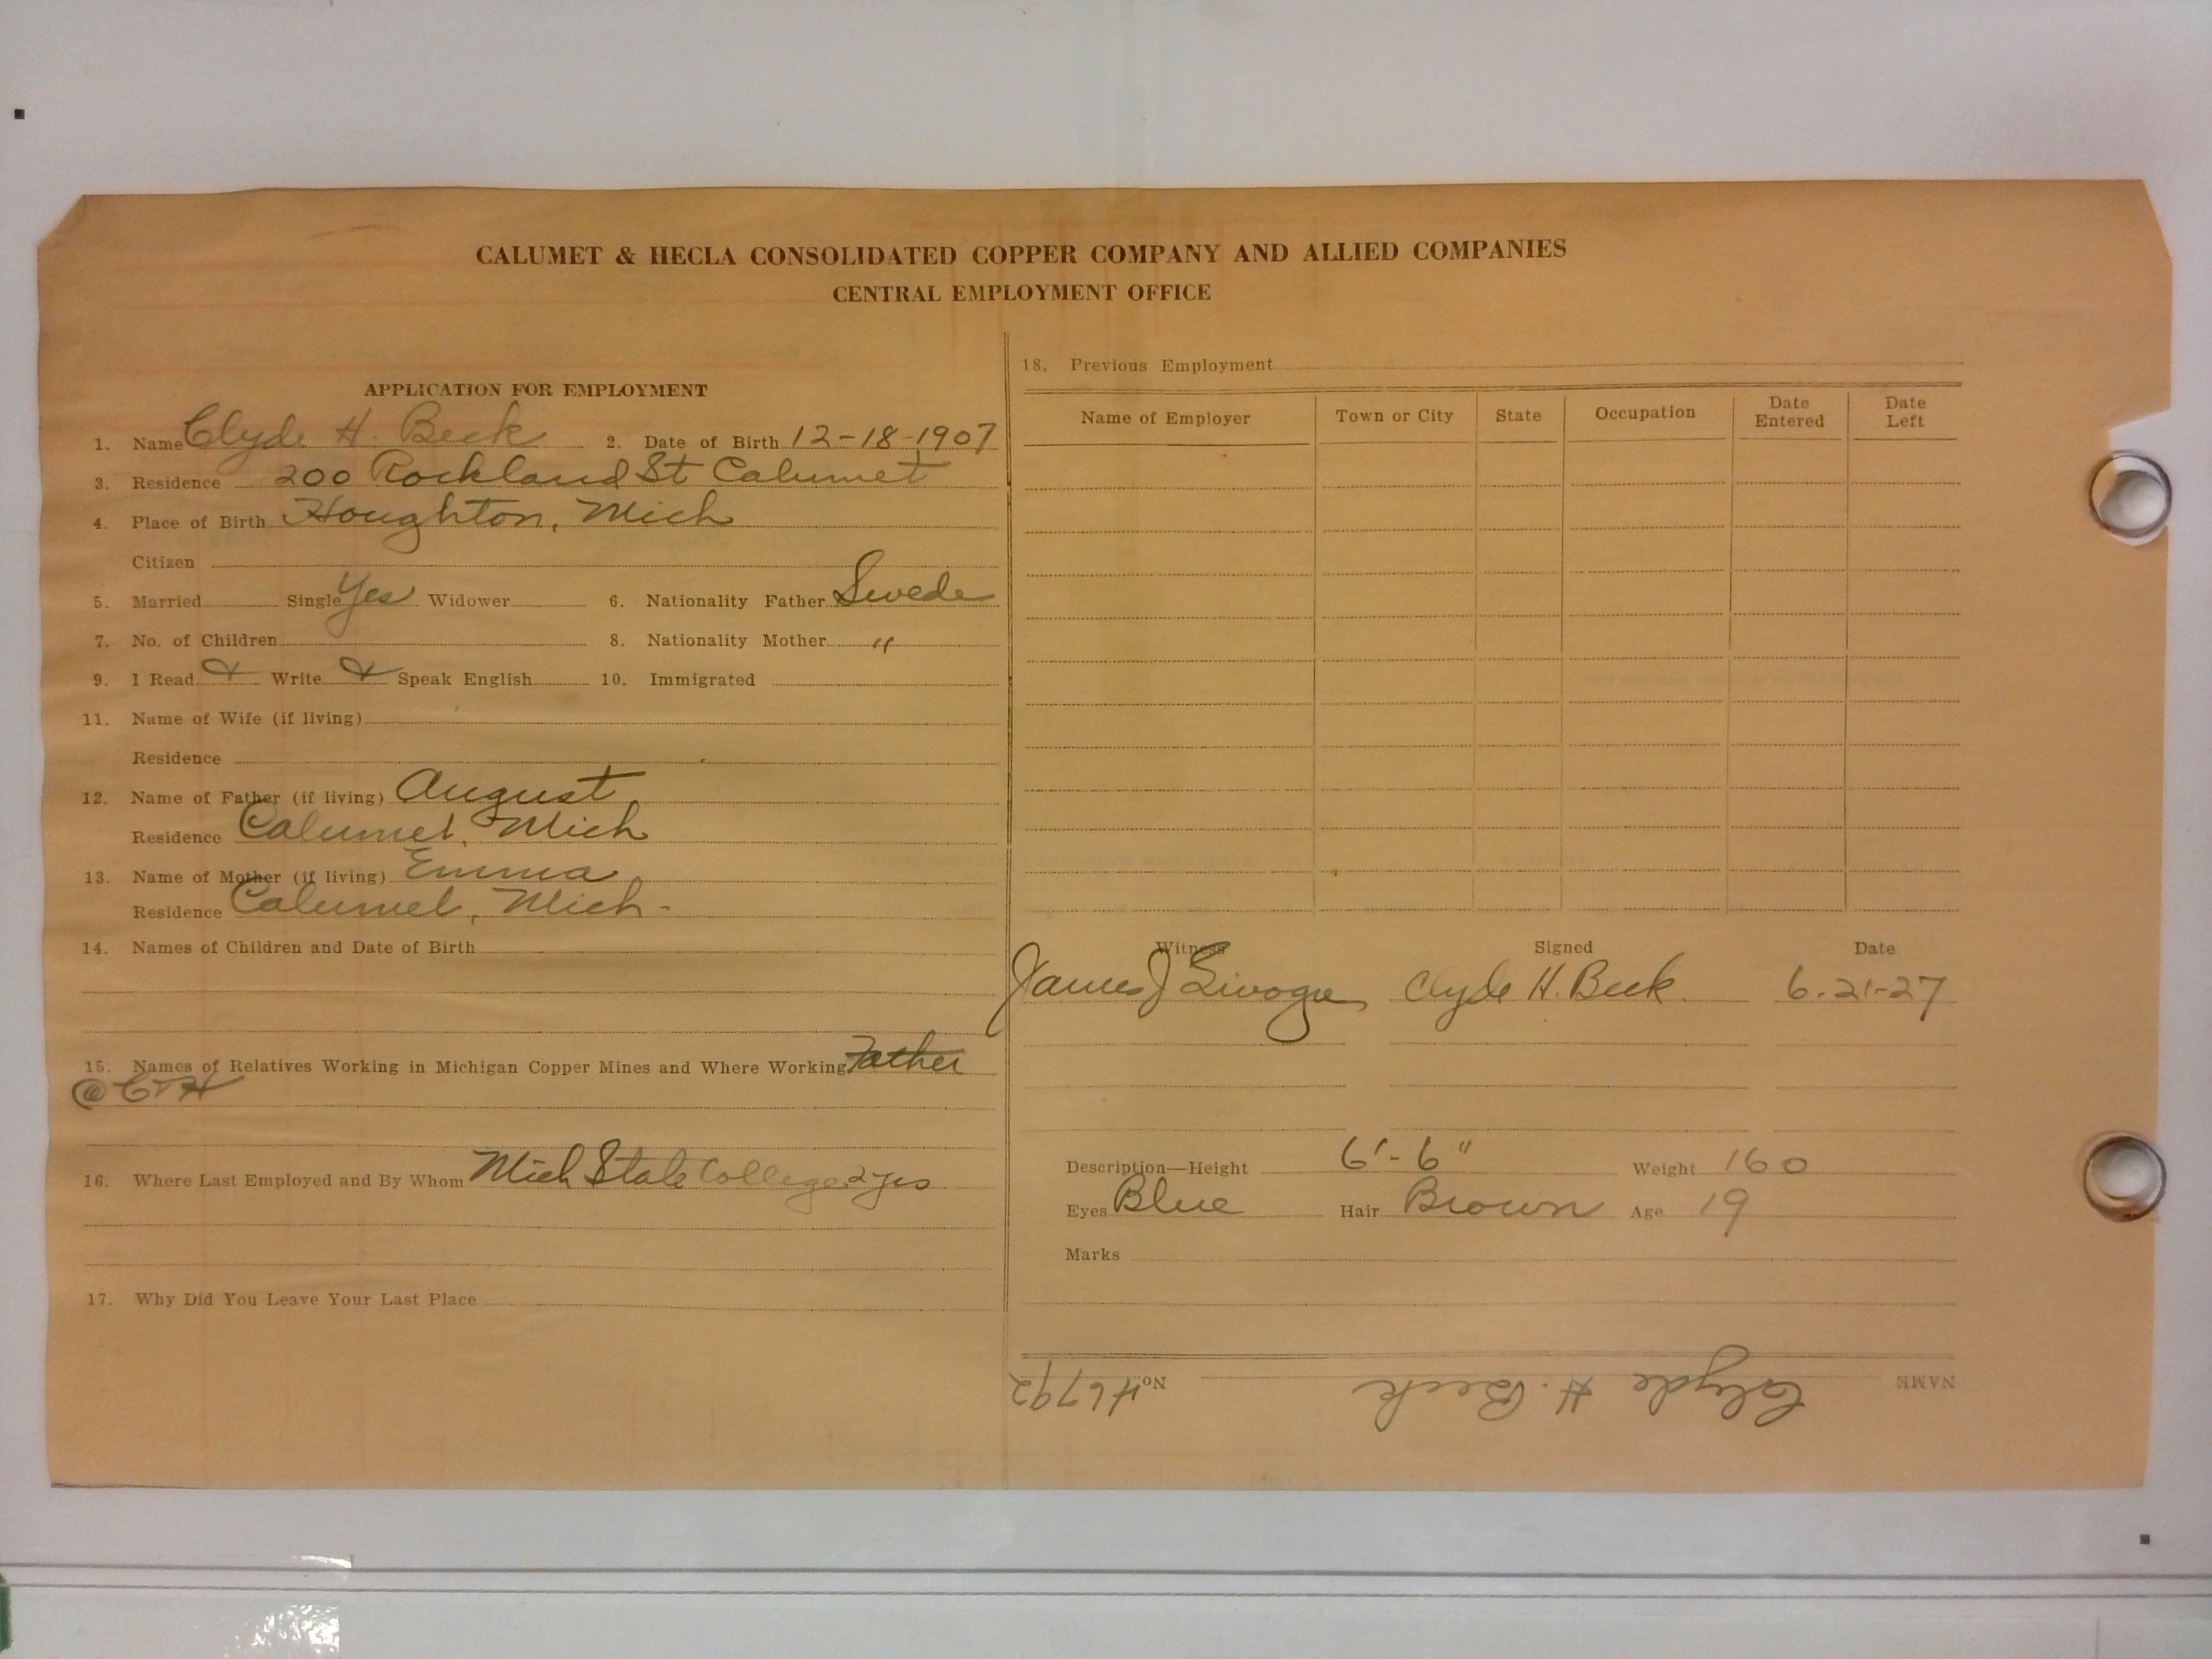 CALUMET & HECLA CONSOLIDATED COPPER COMPANY AND ALLIED COMPANIES
CENTRAL EMPLOYMENT OFFICE
APPLICATION FOR EMPLOYMENT
1. Name Clyde H. Beck 2. Date of Birth 12-18-1907
3. Residence 200 Rockland St Calumet
4. Place of Birth Houghton, Mich
Citizen
5. Married Single Yes Widower 6. Nationality Father Swede
7. No. of Children 8. Nationality Mother "
9. I Read & Write & Speak English 10. Immigrated
11. Name of Wife (if living)
Residence
12. Name of Father (if living) August
Residence Calumet, Mich
13. Name of Mother (if living) Emma
Residence Calumet, Mich-
14. Names of Children and Date of Birth
15. Names of Relatives Working in Michigan Copper Mines and Where Working Father
@ C & H
16. Where Last Employed and By Whom Mich State College 2 yrs
17. Why Did You Leave Your Last Place
18. Previous Employment
Name of Employer Town or City State Occupation Date Entered Date Left
Witness Signed Date
James J Clyde H. Beck 6-21-27
Description—Height 6'-6" Weight 160
Eyes Blue Hair Brown Age 19
Marks
NAME Clyde H. Beck No. 46792